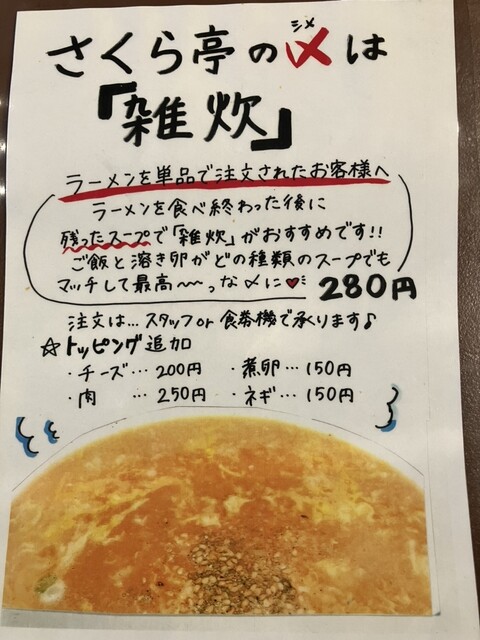 さくら亭の〆は
シメ
「雑炊」
ラーメンを単品で注文されたお客様へ
ラーメンを食べ終わった後に
残ったスープで「雑炊」がおすすめです!!
ご飯と溶き卵がどの種類のスープでも
マッチして最高〜〜っな〆に♥
280円
注文は…スタッフor食券機で承ります♪
☆トッピング追加
・チーズ…200円 ・煮卵…150円
・肉 …250円 ・ネギ…150円